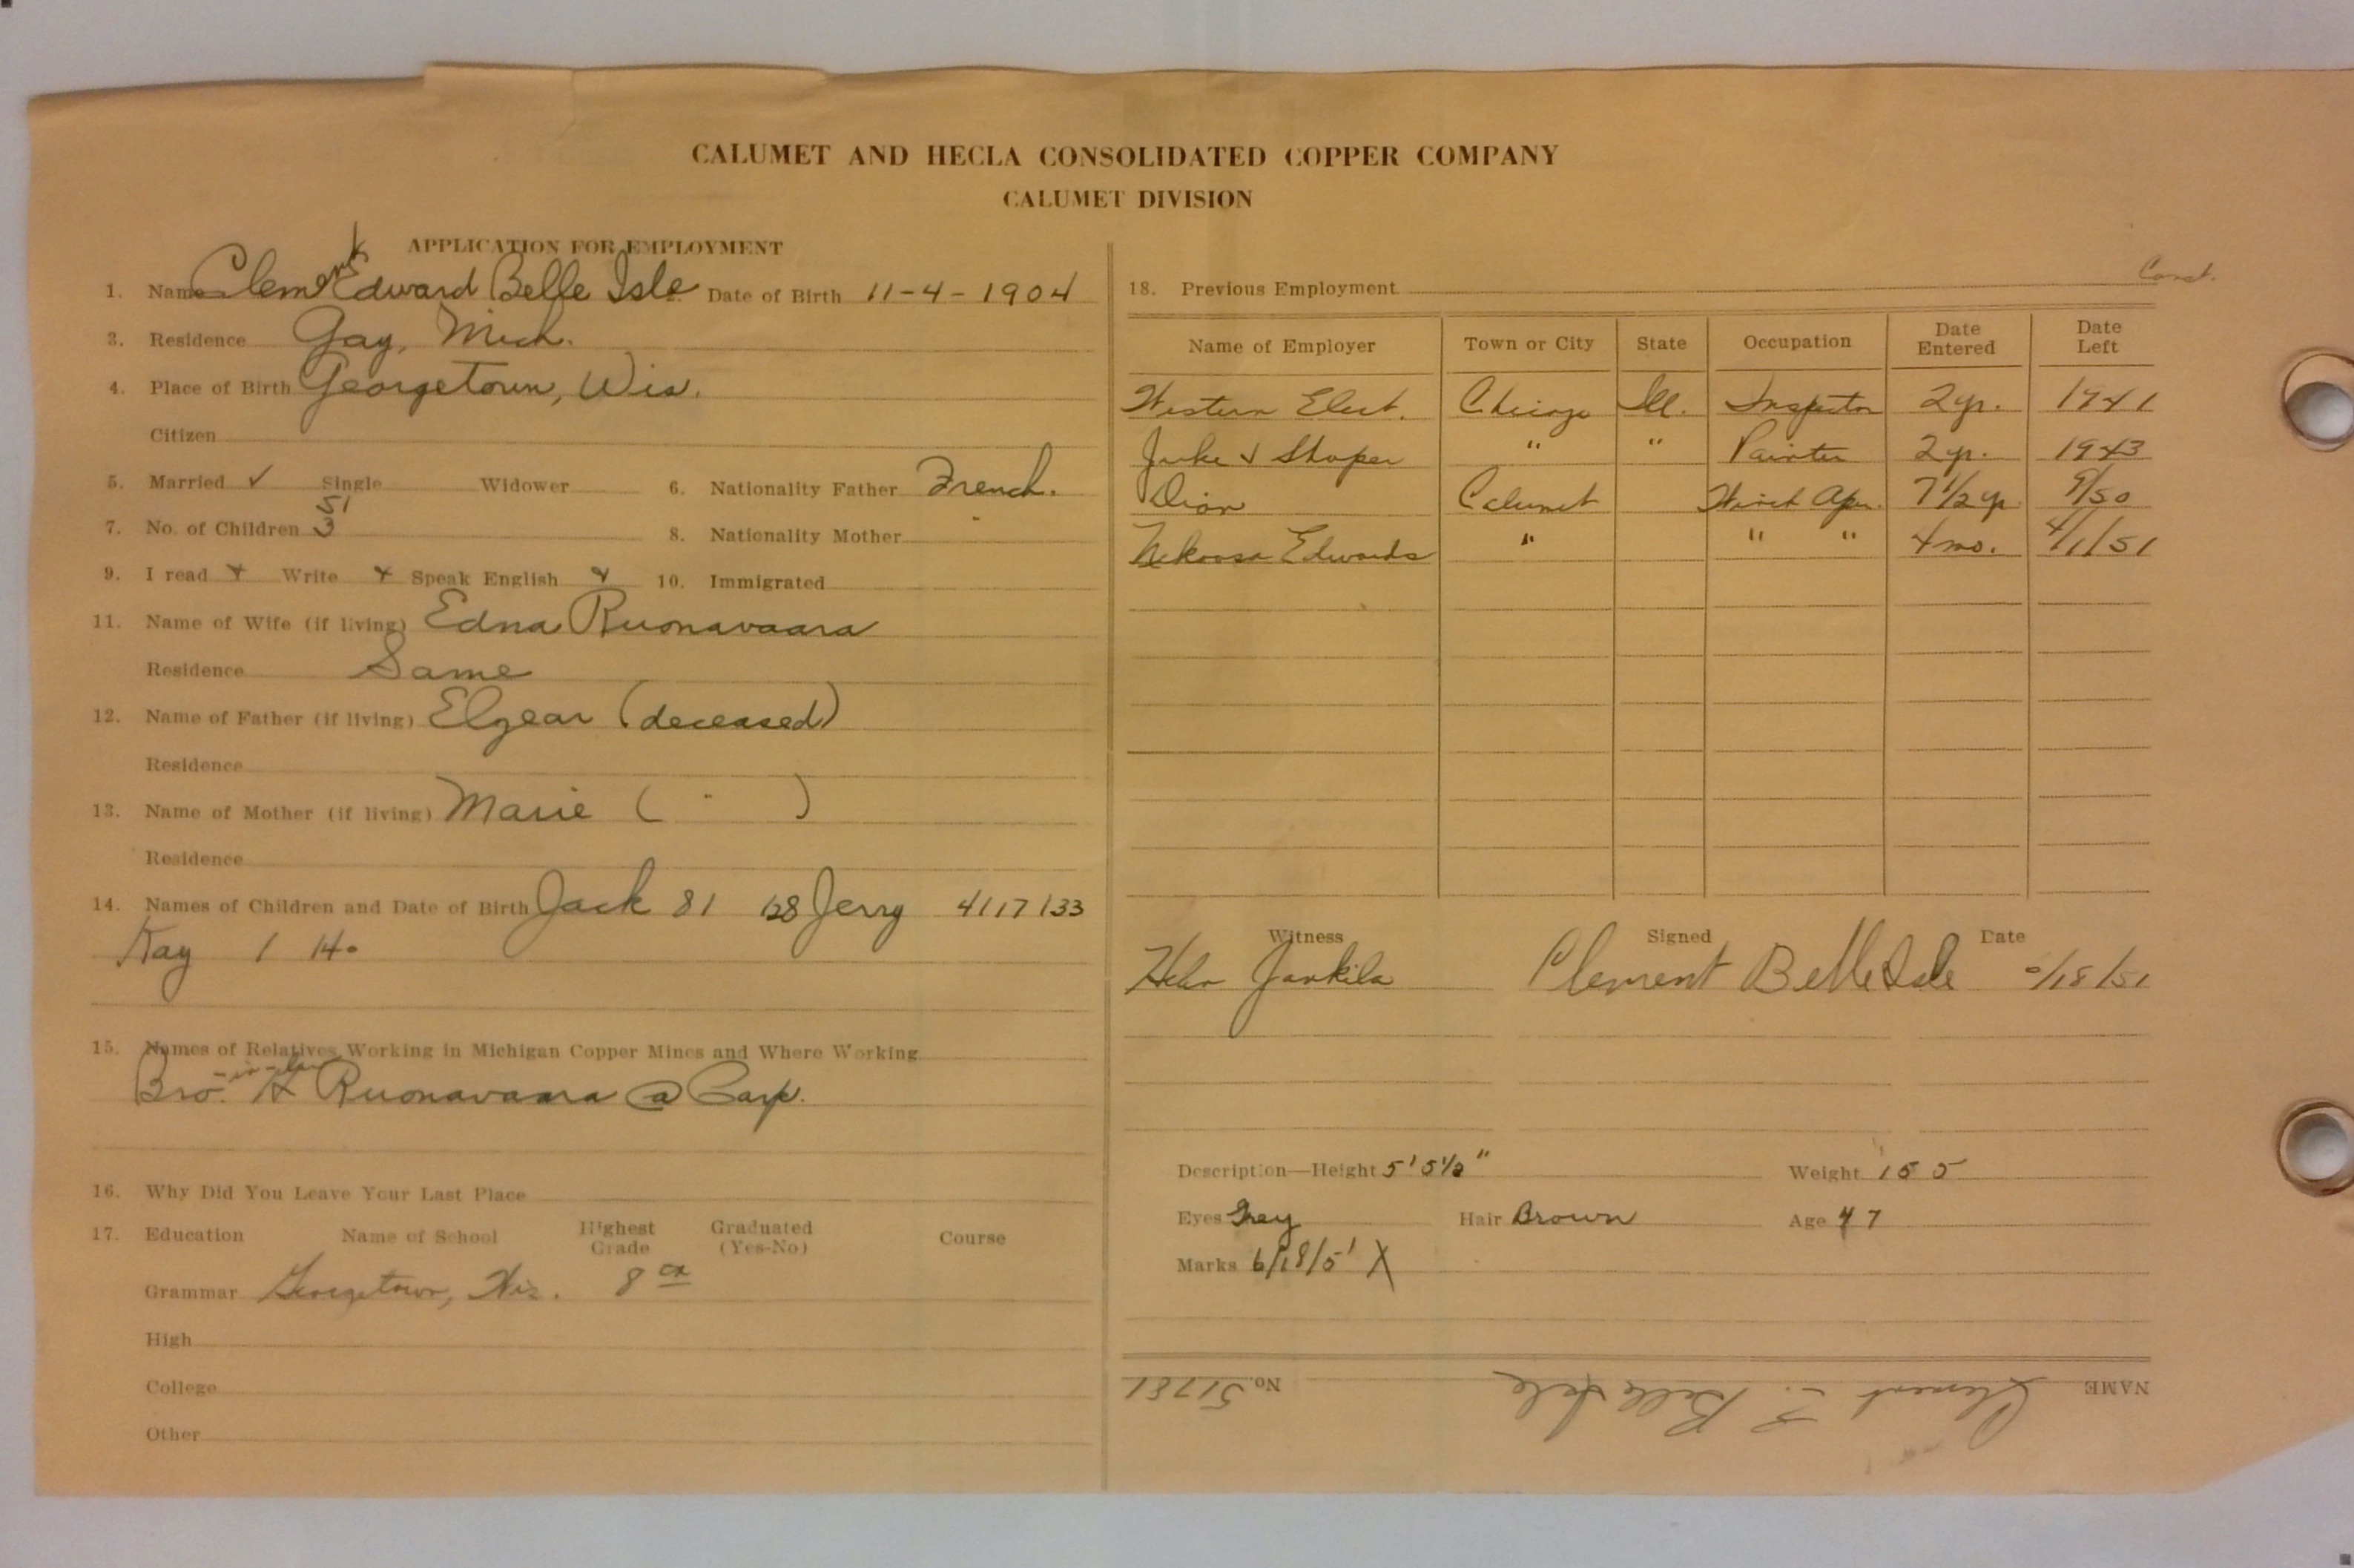 CALUMET AND HECLA CONSOLIDATED COPPER COMPANY
CALUMET DIVISION
APPLICATION FOR EMPLOYMENT
1. Name Clement Edward Belle Isle Date of Birth 11-4-1904
3. Residence Gay, Mich.
4. Place of Birth Georgetown, Wis.
Citizen
5. Married ✓ Single Widower 6. Nationality Father French.
51
7. No. of Children 3 8. Nationality Mother "
9. I read x Write x Speak English x 10. Immigrated
11. Name of Wife (if living) Edna Ruonavaara
Residence Same
12. Name of Father (if living) Elzear (deceased)
Residence
13. Name of Mother (if living) Marie ( " )
Residence
14. Names of Children and Date of Birth Jack 8/ /28 Jerry 4/17/33
Kay / /40
15. Names of Relatives Working in Michigan Copper Mines and Where Working
Bro.-in-law H Ruonavaara @ Carp.
16. Why Did You Leave Your Last Place
17. Education Name of School Highest Grade Graduated (Yes-No) Course
Grammar Georgetown, Wis. 8
High
College
Other
Const.
18. Previous Employment
Name of Employer Town or City State Occupation Date Entered Date Left
Western Elect. Chicago Ill. Inspector 2 yr. 1941
& " " Painter 2 yr. 1943
Dion Calumet Winch Oper. 7 1/2 yr 9/50
Nekoosa Edwards " " " 4 mo. 4/1/51
Witness Signed Date
Clement Belle Isle 6/18/51
Description—Height 5' 5 1/2" Weight 155
Eyes Grey Hair Brown Age 47
Marks 6/18/51 X
NAME Clement E. Belle Isle No. 51781